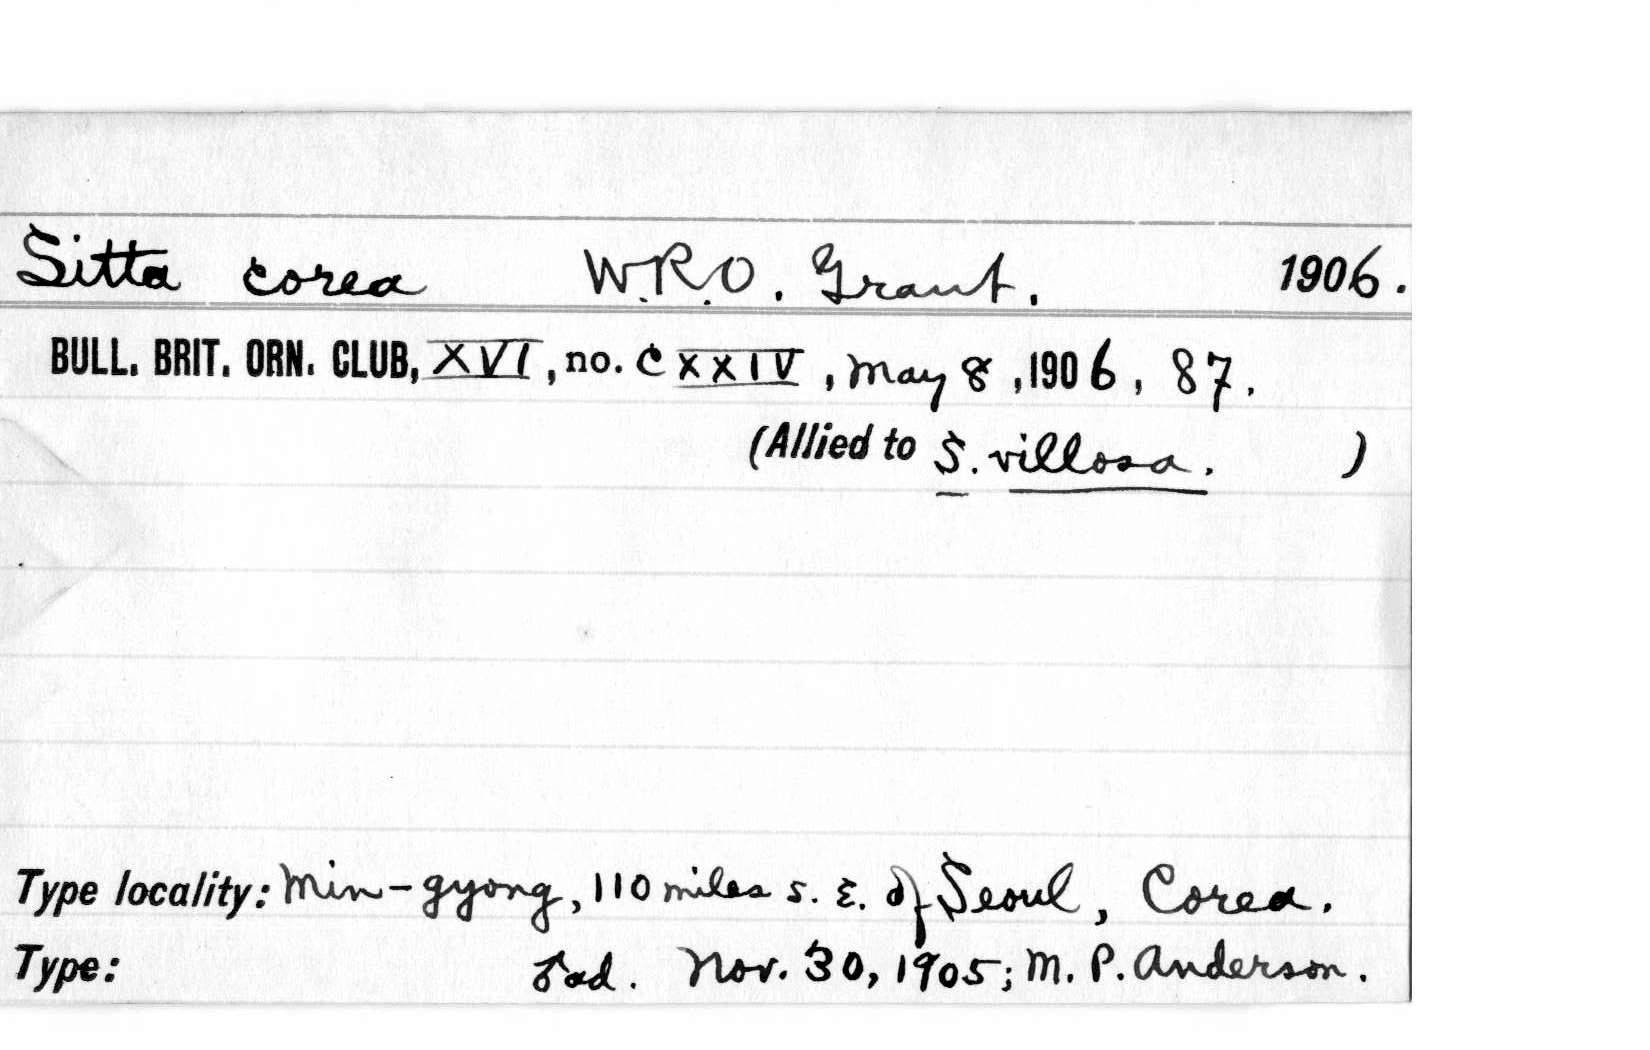 Sitta corea W.R.O. Grant. 1906.
BULL. BRIT. ORN. CLUB, XVI, no. CXXIV, May 8, 1906, 87.
(Allied to S. villosa. )
Type locality: Min-gyong, 110 miles s. E. of Seoul, Corea.
Type: ♂ ad. Nov. 30, 1905; M. P. Anderson.